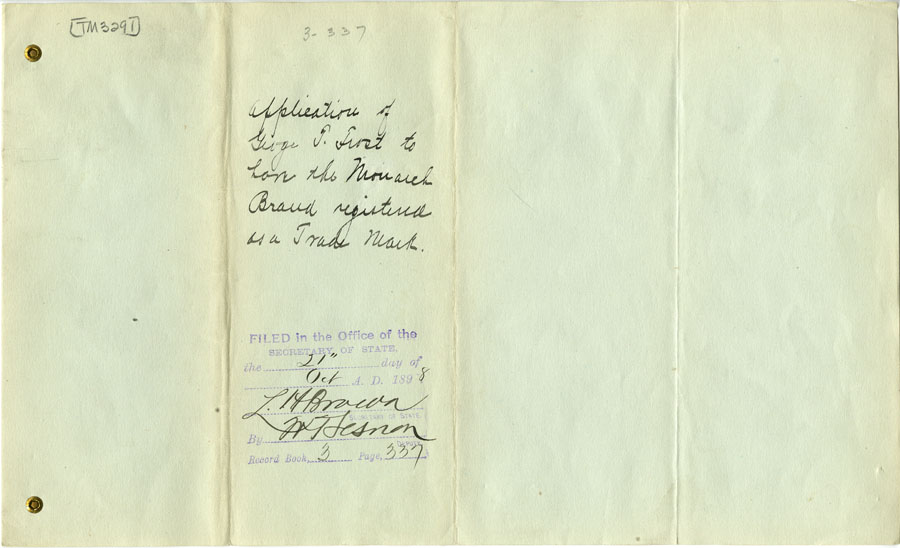 [TM3291]
3-337
Application of
George T. Frost to
have the Monarch
Brand registered
as a Trade Mark.
FILED in the Office of the
SECRETARY OF STATE,
the 21" day of
Oct A. D. 1898
L. H. Brown
SECRETARY OF STATE.
By W Hesnon
Deputy.
Record Book, 3 Page, 337